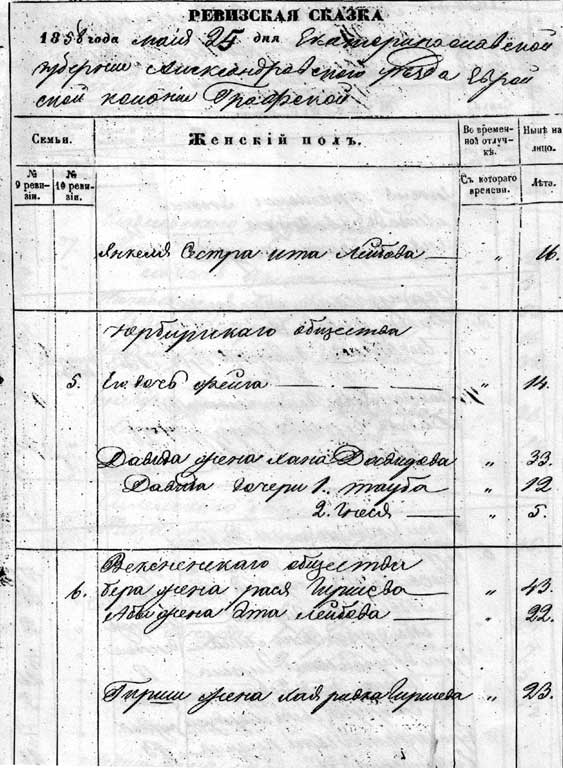 РЕВИЗСКАЯ СКАЗКА
1858 года мая 25 дня Екатеринославской
губернии Александровского уезда Еврей
ской колонии Графской
Семьи.
Женскій полъ.
Во времен-
ной отлуч-
кѣ.
Нынѣ на
лицо.
№
9 реви-
зіи.
№
10 реви-
зіи.
Съ котораго
времени.
Лѣта.
Янкеля Сестра ита Лейбова — „ 16.
Юрбургскаго общества
5. Его дочь фейга — „ 14.
Давида жена хана Давидова „ 33.
Давида дочери 1. тауба „ 12
2. Гнеся — „ 5.
Векшненскаго общества
6. бера жена рася Гиршева — „ 43.
Абы жена Эта Лейбова — „ 22.
Гирши жена хая ривка Гиршева „ 23.